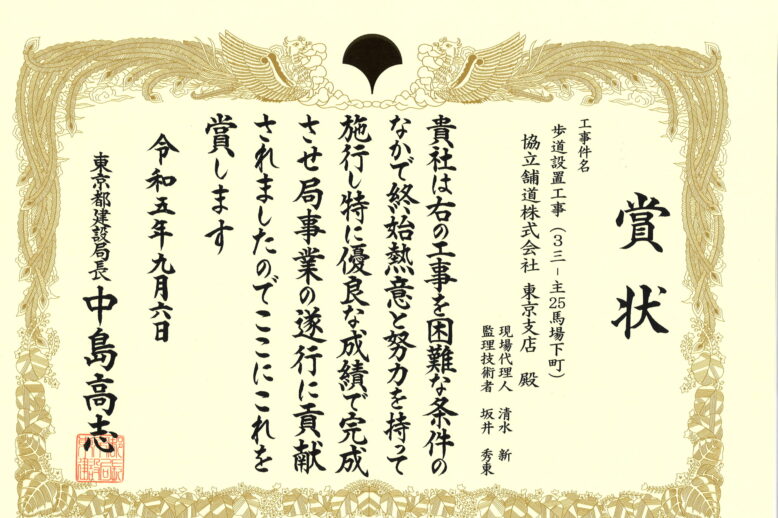 賞状
工事件名
歩道設置工事（３三－主25馬場下町）
協立舗道株式会社 東京支店 殿
現場代理人 清水 新
監理技術者 坂井 秀東
貴社は右の工事を困難な条件の
なかで終始熱意と努力を持って
施行し特に優良な成績で完成
させ局事業の遂行に貢献
されましたのでここにこれを
賞します
令和五年九月六日
東京都建設局長 中島高志